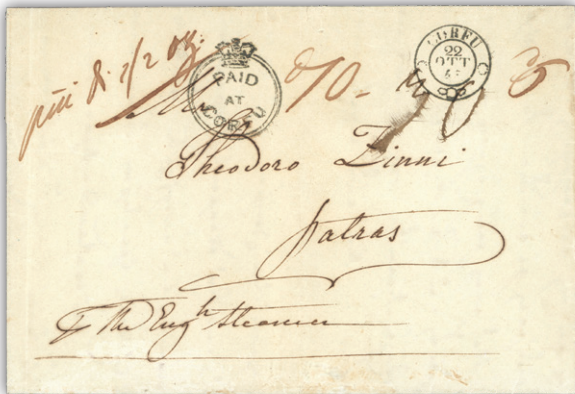 più di 2/2 oz.
PAID
AT
CORFU
CORFU
22
OTT
Mr
Theodoro Zinni
Patras
p The Engh Steamer